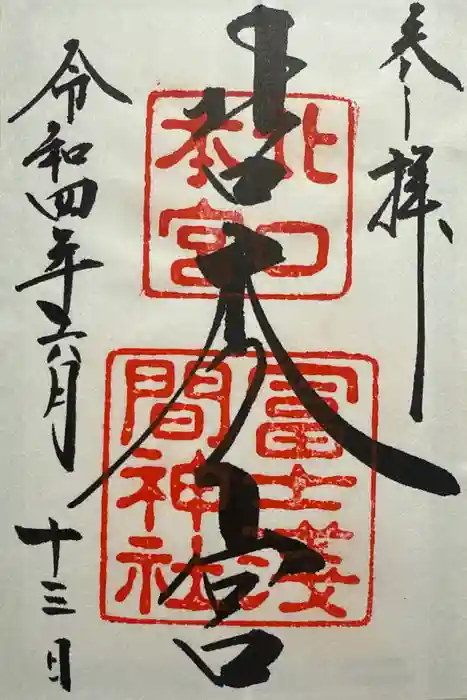 奉拝
大宮
北口
本宮
冨士淺
間神社
令和四年六月十三日